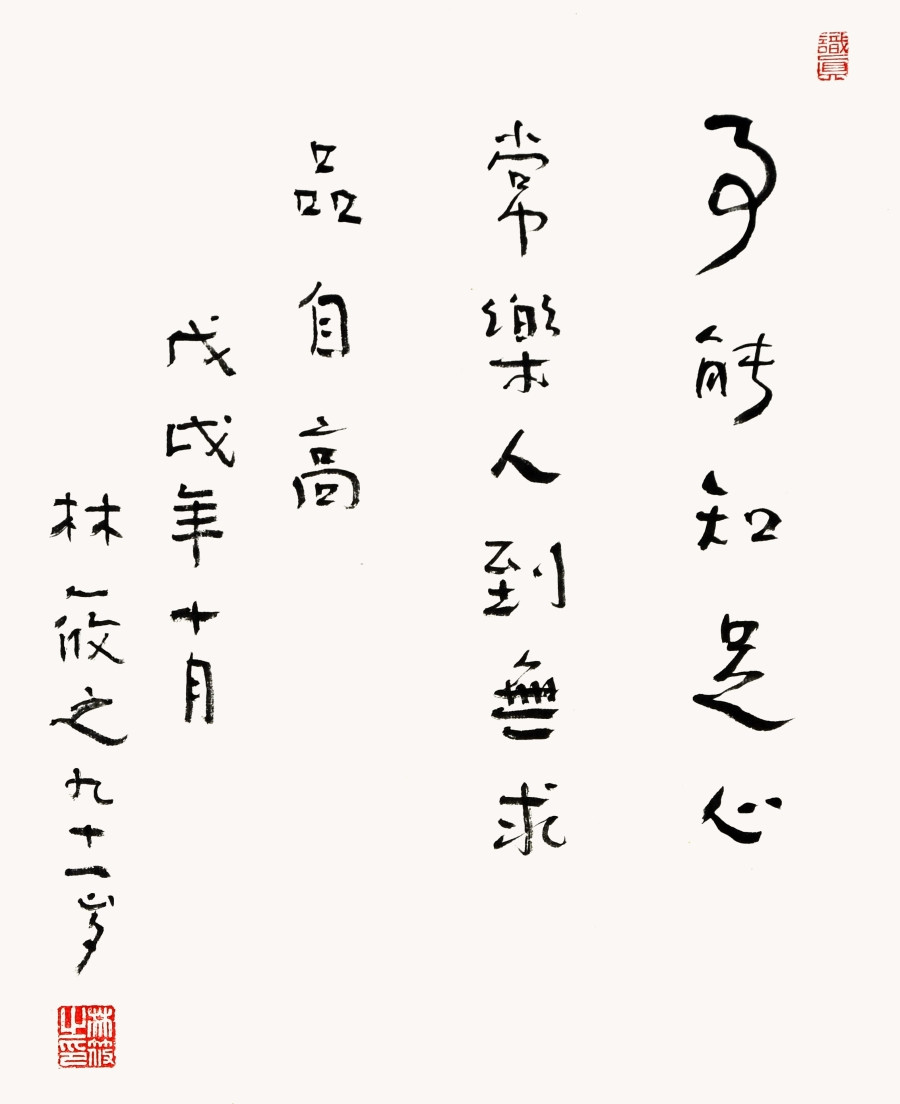 識真
事能知足心
常樂人到無求
品自高
戊戌年十月
林筱之九十一岁
林筱之印